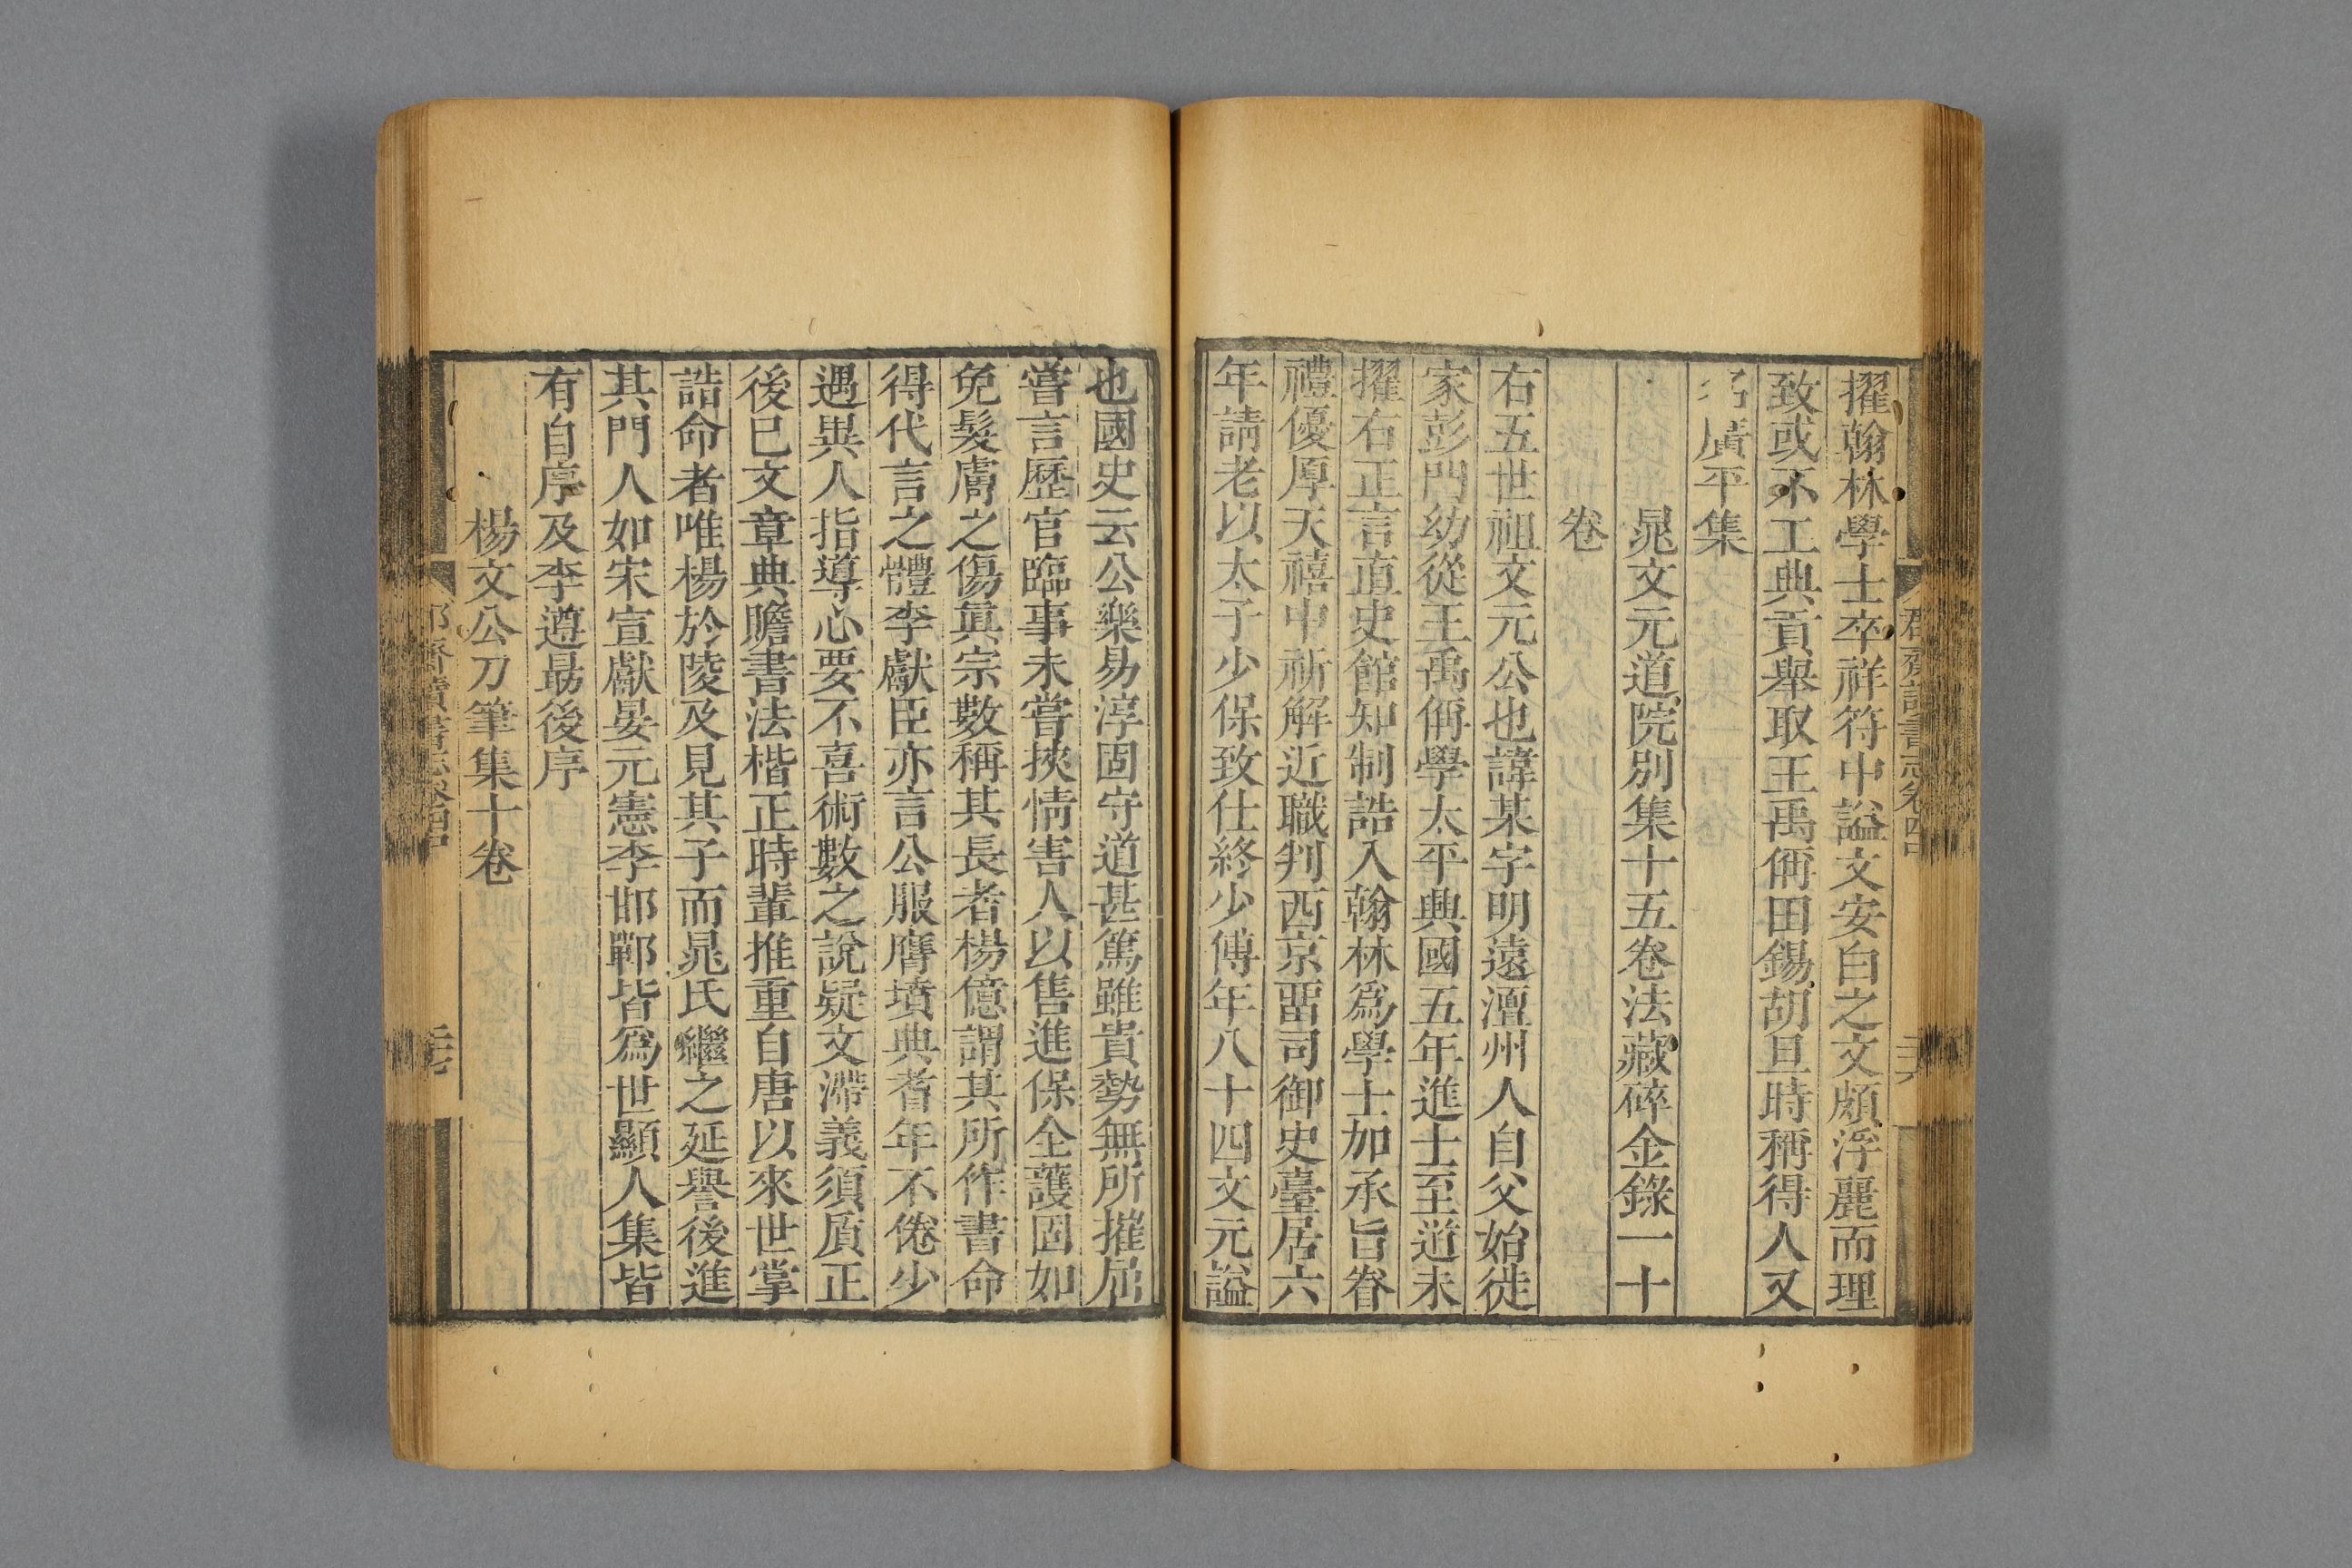 擢翰林學士卒祥符中謚文安白之文頗浮麗而理
致或不工典貢舉取王禹偁田錫胡旦時稱得人又
名廣平集
晁文元道院別集十五卷法藏碎金錄一十
卷
右五世祖文元公也諱某字明遠澶州人自父始徙
家彭門幼從王禹偁學太平興國五年進士至道末
擢右正言直史館知制誥入翰林爲學士加承旨眷
禮優厚天禧中祈解近職判西京畱司御史臺居六
年請老以太子少保致仕終少傅年八十四文元謚
也國史云公樂易淳固守道甚篤雖貴勢無所摧屈
嘗言歷官臨事未嘗挾情害人以售進保全護固如
免髮膚之傷眞宗數稱其長者楊億謂其所作書命
得代言之體李獻臣亦言公服膺墳典耆年不倦少
遇異人指導心要不喜術數之說疑文滯義須質正
後已文章典贍書法楷正時輩推重自唐以來世掌
誥命者唯楊於陵及見其子而晁氏繼之延譽後進
其門人如宋宣獻晏元憲李邯鄲皆爲世顯人集皆
有自序及李遵勗後序
楊文公刀筆集十卷